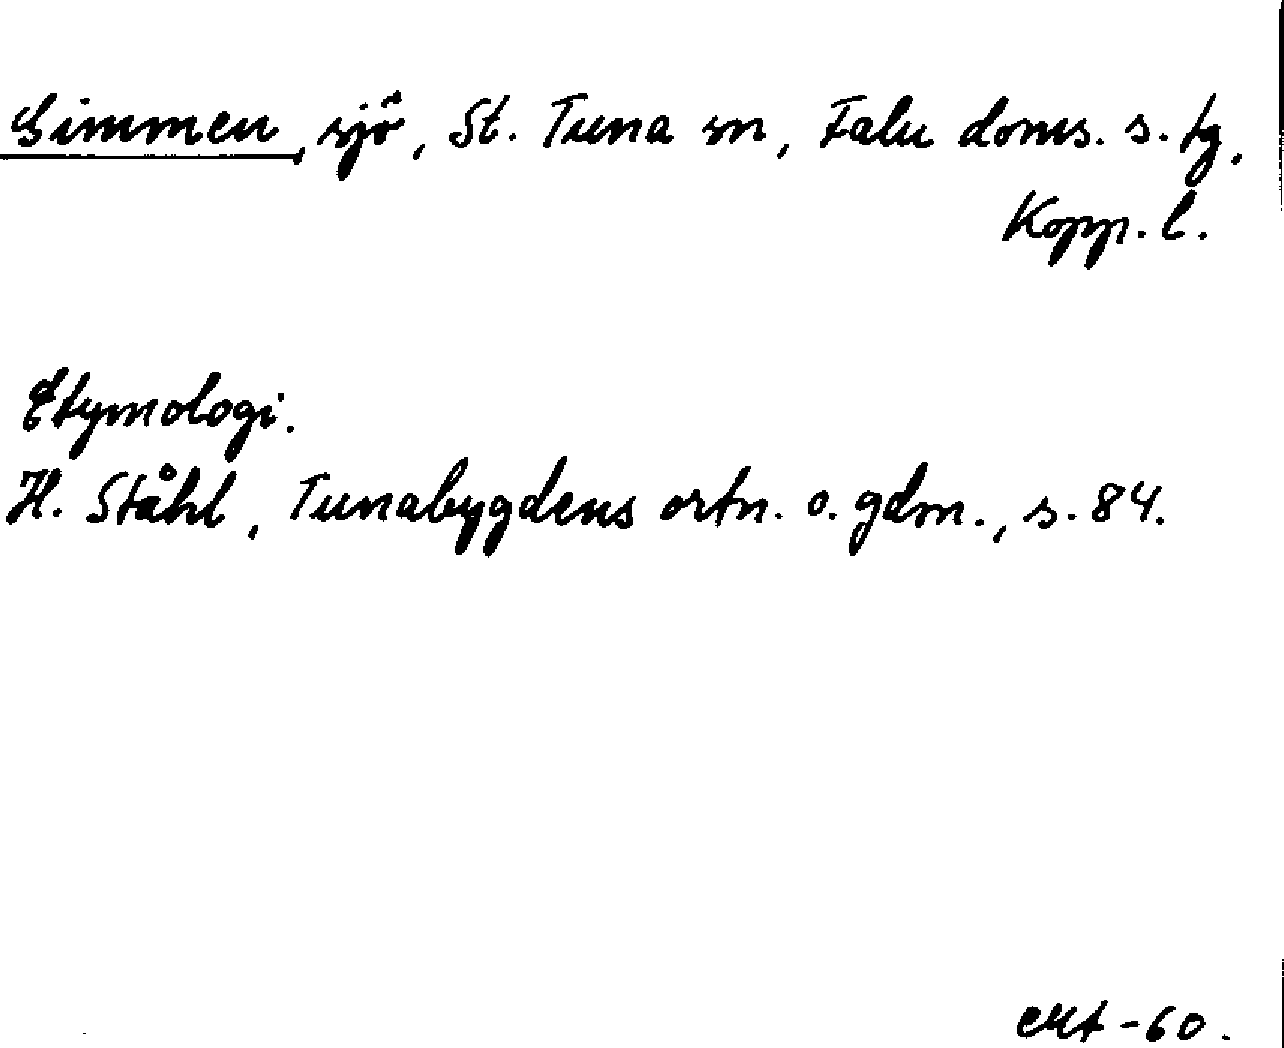 Simmen, sjö, St. Tuna sn, Falu doms. s. tg,
Kopp. l.
Etymologi.
H. Ståhl, Tunabygdens ortn. o. gdm., s. 84.
-60.